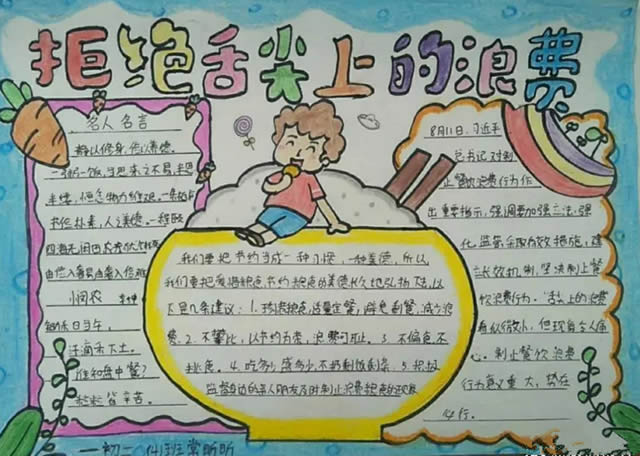 拒绝舌尖上的浪费
名人名言
静以修身,俭以养德。
一粥一饭,当思来之不易,半丝
半缕,恒念物力维艰。
由俭入奢易由奢入俭难
悯农
锄禾日当午,
汗滴禾下土。
谁知盘中餐?
粒粒皆辛苦。
我们要把节约当成一种习惯,一种美德,所以,
我们要把爱惜粮食,节约粮食的美德长久地弘扬下去,以
下是几条建议:1.珍惜粮食,适量定餐,避免剩餐,减少浪
费.2.不攀比,以节约为荣,浪费可耻。3.不偏食不
挑食。4.吃多少盛多少,不扔剩饭剩菜。5.积极
监督身边的亲人朋友及时制止浪费粮食的现象
8月11日,习近平
总书记对制
止餐饮浪费行为作
出重要指示,强调要加强立法,强
化监管,采取有效措施,建
长效机制,坚决制止餐
饮浪费行为。"舌尖上的浪费
看似微小,但现象令人痛
心。制止餐饮浪费
行为意义重大,势在
必行。
初二 (4)班 常昕昕